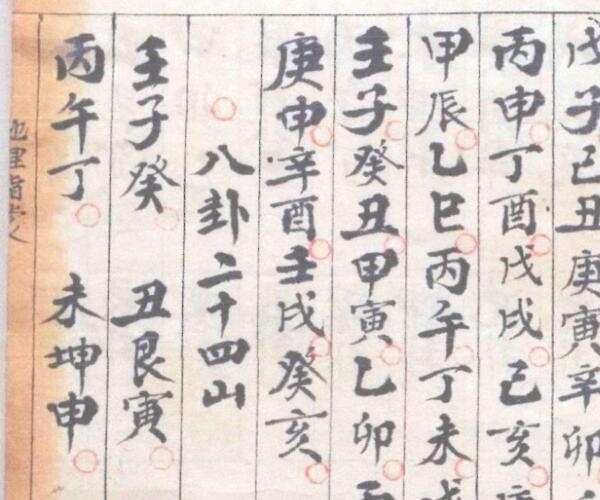 戊子己丑庚寅辛卯
丙申丁酉戊戌己亥
甲辰乙巳丙午丁未
壬子癸丑甲寅乙卯
庚申辛酉壬戌癸亥
八卦二十四山
壬子癸 丑艮寅
丙午丁 未坤申